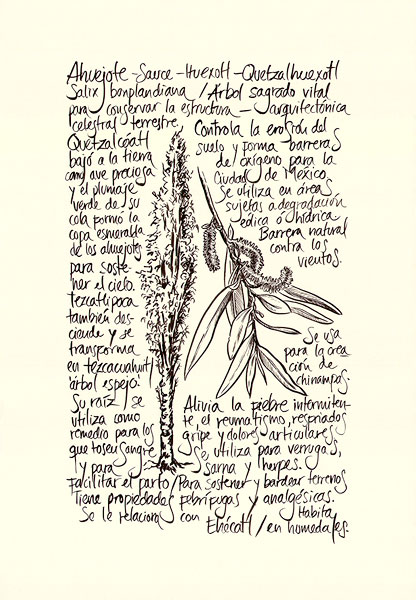 Ahuejote - Sauce - Huexotl - Quetzalhuexotl
Salix bonplandiana / Árbol sagrado vital
para conservar la estructura - arquitectónica
celestial terrestre.
Quetzalcóatl
bajó a la tierra
como ave preciosa
y el plumaje
verde de su
cola formó la
copa esmeralda
de los ahuejotes
para soste-
ner el cielo.
Tezcatlipoca
también des-
ciende y se
transforma
en tezcacuahuitl
árbol espejo.
Su raíz / se
utiliza como
remedio para los
que tosen sangre
y para
Facilitar el parto / Para sostener y bardear terrenos
Controla la erosión del
suelo y forma barreras
de oxígeno para la
Ciudad de México
Se utiliza en áreas
sujetas a degradación
eólica ó hídrica
Barrera natural
contra los
vientos.
Se usa
para la crea
ción de
chinampas.
Alivia la fiebre intermiten-
te, el reumatismo, resfriados
gripe y dolores articulares
Se utiliza para verrugas,
sarna y herpes.
Tiene propiedades febrífugas y analgésicas.
Se le relaciona con Ehécatl / Habita
en humedales.